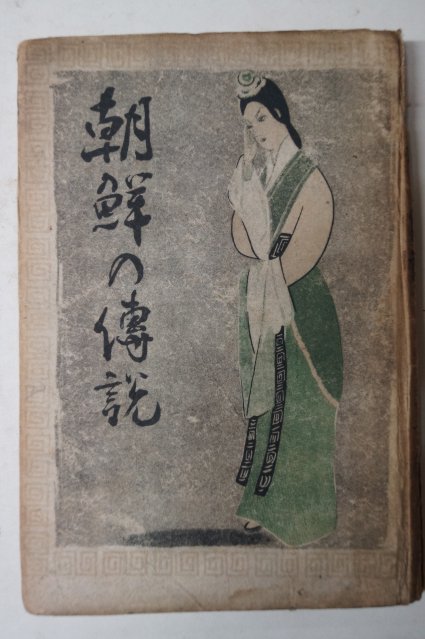 朝鮮の傳説